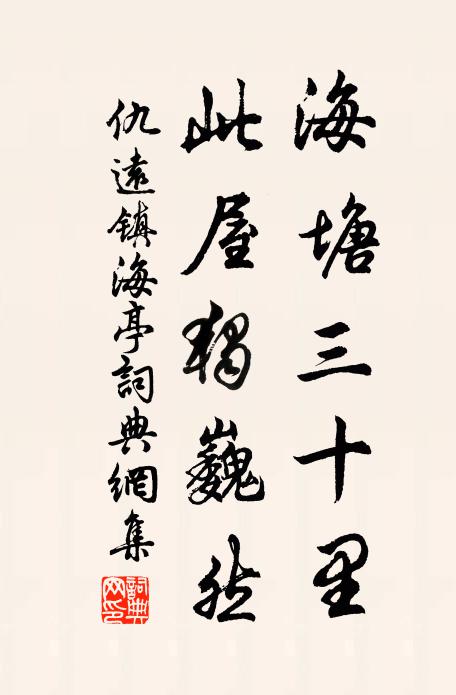 海塘三十里
此屋獨巍然
仇遠鎮海亭詞典網集
詞典网印